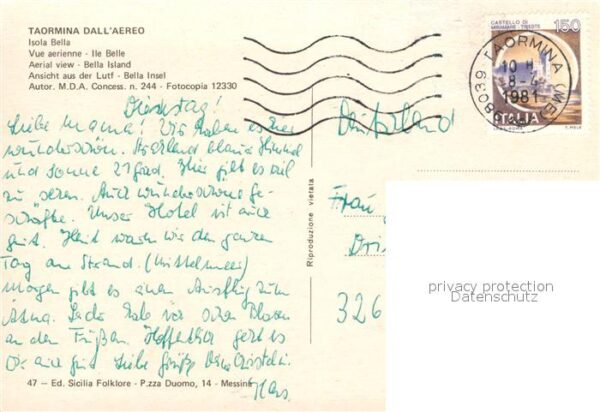 TAORMINA DALL'AEREO
Isola Bella
Vue aerienne - Ile Belle
Aerial view - Bella Island
Ansicht aus der Lutf - Bella Insel
Autor. M.D.A. Concess. n. 244 - Fotocopia 12330
Dienstag!
Liebe Mama! Wir haben es hier
wunderschön. Strahlend blauer Himmel
und Sonne 27 Grad. Hier gibt es viel
zu sehen. Auch wunderschöne Ge-
schäfte. Unser Hotel ist auch
gut. Heut waren wir den ganzen
Tag am Strand. (Mittelmeer)
Morgen gibt es einen Ausflug zum
Ätna. Habe schon Blasen
an den Füßen. Hoffentlich geht es
Dir auch gut. Liebe Grüße
47 - Ed. Sicilia Folklore - P.zza Duomo, 14 - Messina
Riproduzione vietata
CASTELLO DI
MIRAMARE - TRIESTE
150
98039 TAORMINA (ME)
10 H
1981
ITALIA
Deutschland
Frau
326
privacy protection
Datenschutz